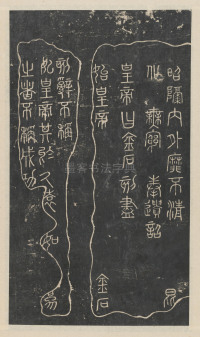 昭隔内外靡不清 昆
化 無窮 奉遺詔
皇帝曰金石刻盡
始皇帝 金石
刻辭不稱
始皇帝其於久遠也如 爲
之者不稱成功